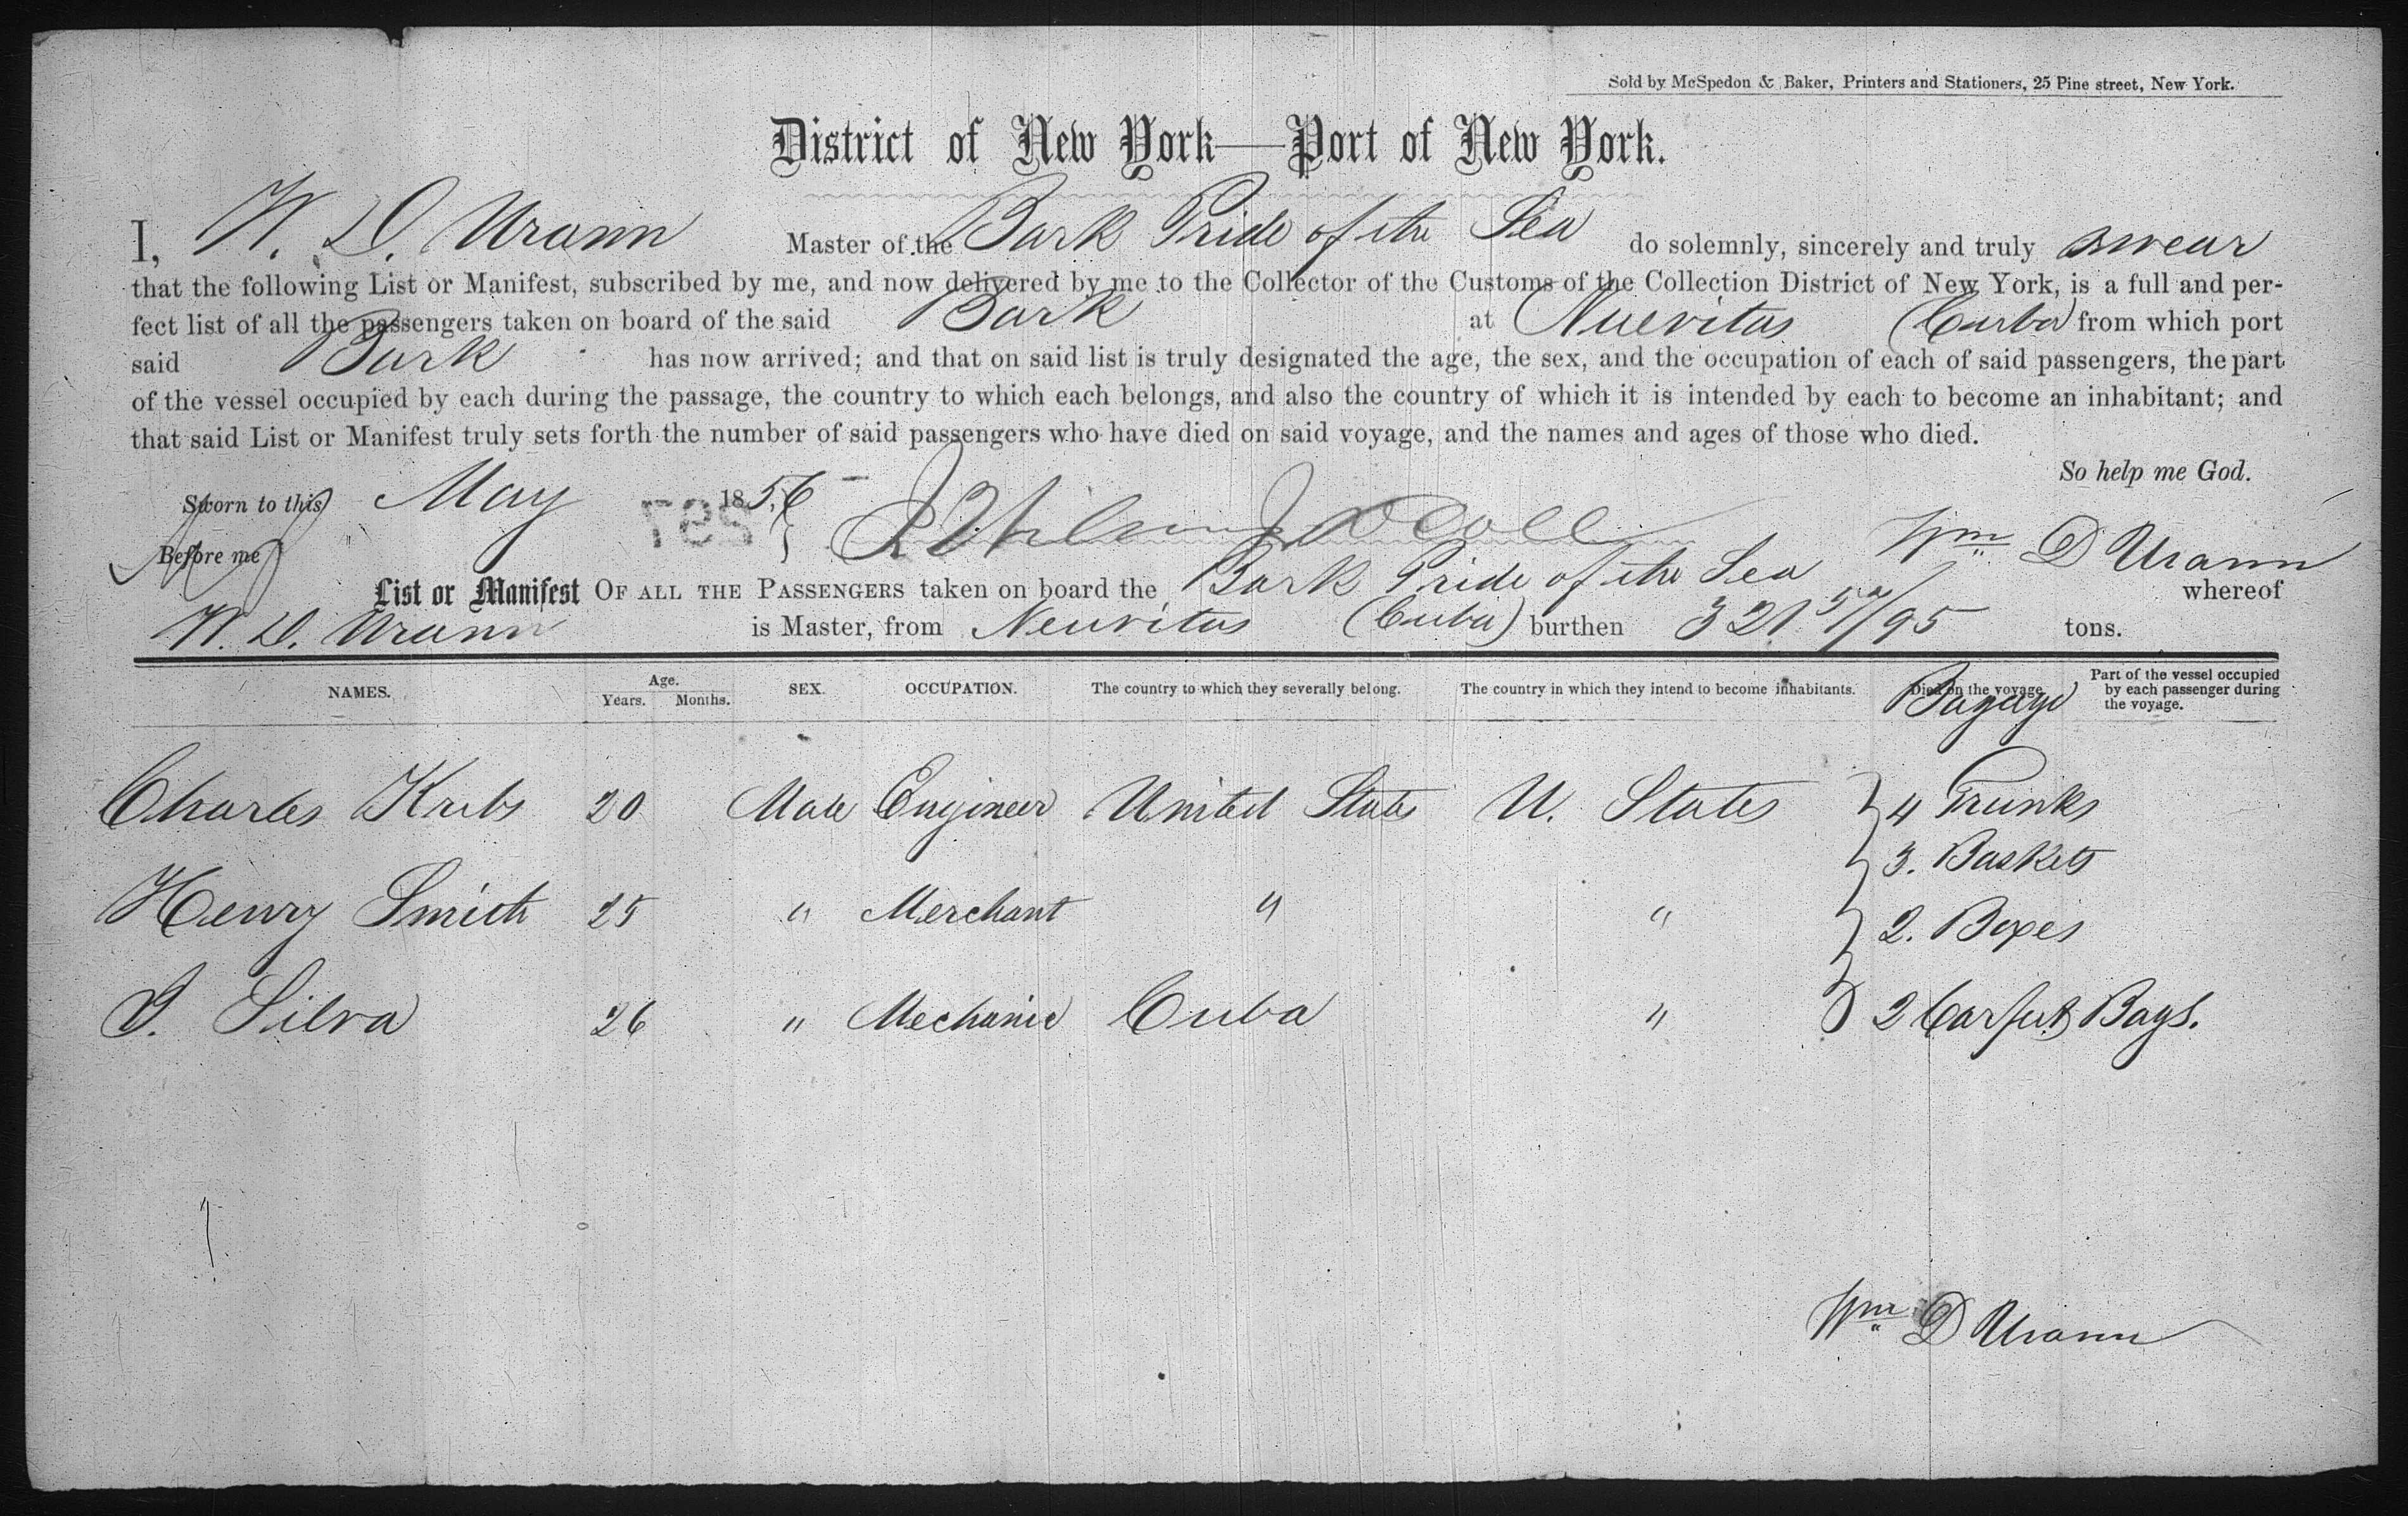 Sold by McSpedon & Baker, Printers and Stationers, 25 Pine street, New York.
District of New York—Port of New York.
I, W. D. Urann Master of the Bark Pride of the Sea do solemnly, sincerely and truly swear
that the following List or Manifest, subscribed by me, and now delivered by me to the Collector of the Customs of the Collection District of New York, is a full and per-
fect list of all the passengers taken on board of the said Bark at Nuevitas (Cuba) from which port
said Bark has now arrived; and that on said list is truly designated the age, the sex, and the occupation of each of said passengers, the part
of the vessel occupied by each during the passage, the country to which each belongs, and also the country of which it is intended by each to become an inhabitant; and
that said List or Manifest truly sets forth the number of said passengers who have died on said voyage, and the names and ages of those who died.
So help me God.
Sworn to this May 1856
Before me Wm D Urann
List or Manifest OF ALL THE PASSENGERS taken on board the Bark Pride of the Sea whereof
W. D. Urann is Master, from Neuvitas (Cuba) burthen 321 /95 tons.
NAMES. Age. Years. Months. SEX. OCCUPATION. The country to which they severally belong. The country in which they intend to become inhabitants. Died on the voyage. Bagage Part of the vessel occupied by each passenger during the voyage.
Charles 20 Male Engineer United States U. States 4 Trunks
3. Baskets
Henry Smith 25 " Merchant " " 2. Boxes
Silva 26 " Mechanic Cuba " 2 Carpet Bags.
Wm D Urann